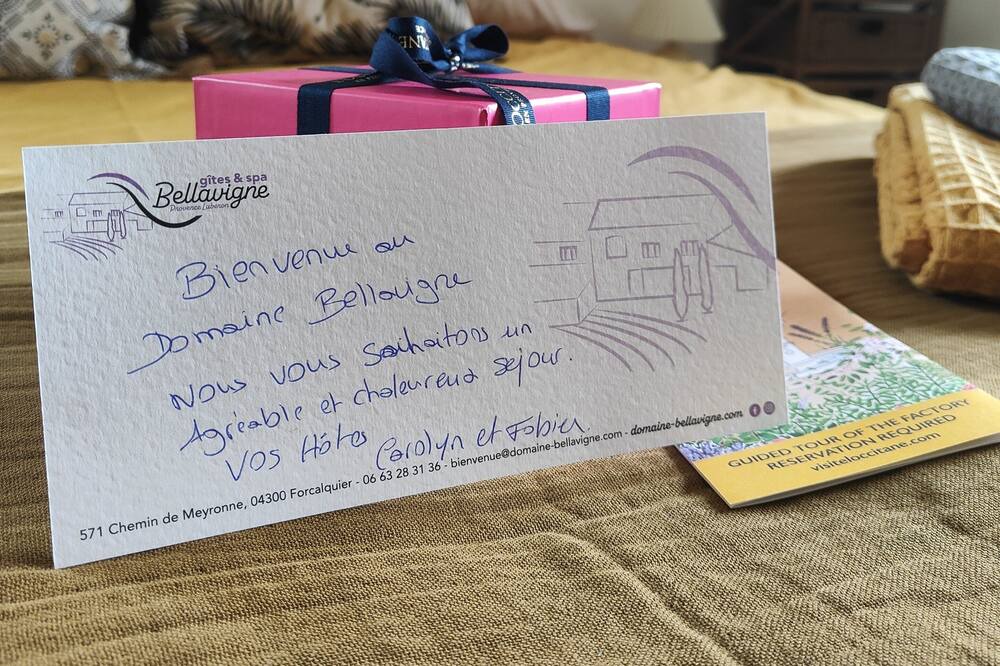 gîtes & spa
Bellavigne
Provence Luberon
Bienvenue au
Domaine Bellavigne
Nous vous souhaitons un
Agréable et chaleureux séjour.
Vos Hôtes Carolyn et Fabien.
571 Chemin de Meyronne, 04300 Forcalquier - 06 63 28 31 36 - bienvenue@domaine-bellavigne.com - domaine-bellavigne.com
GUIDED TOUR OF THE FACTORY
RESERVATION REQUIRED
visiteloccitane.com